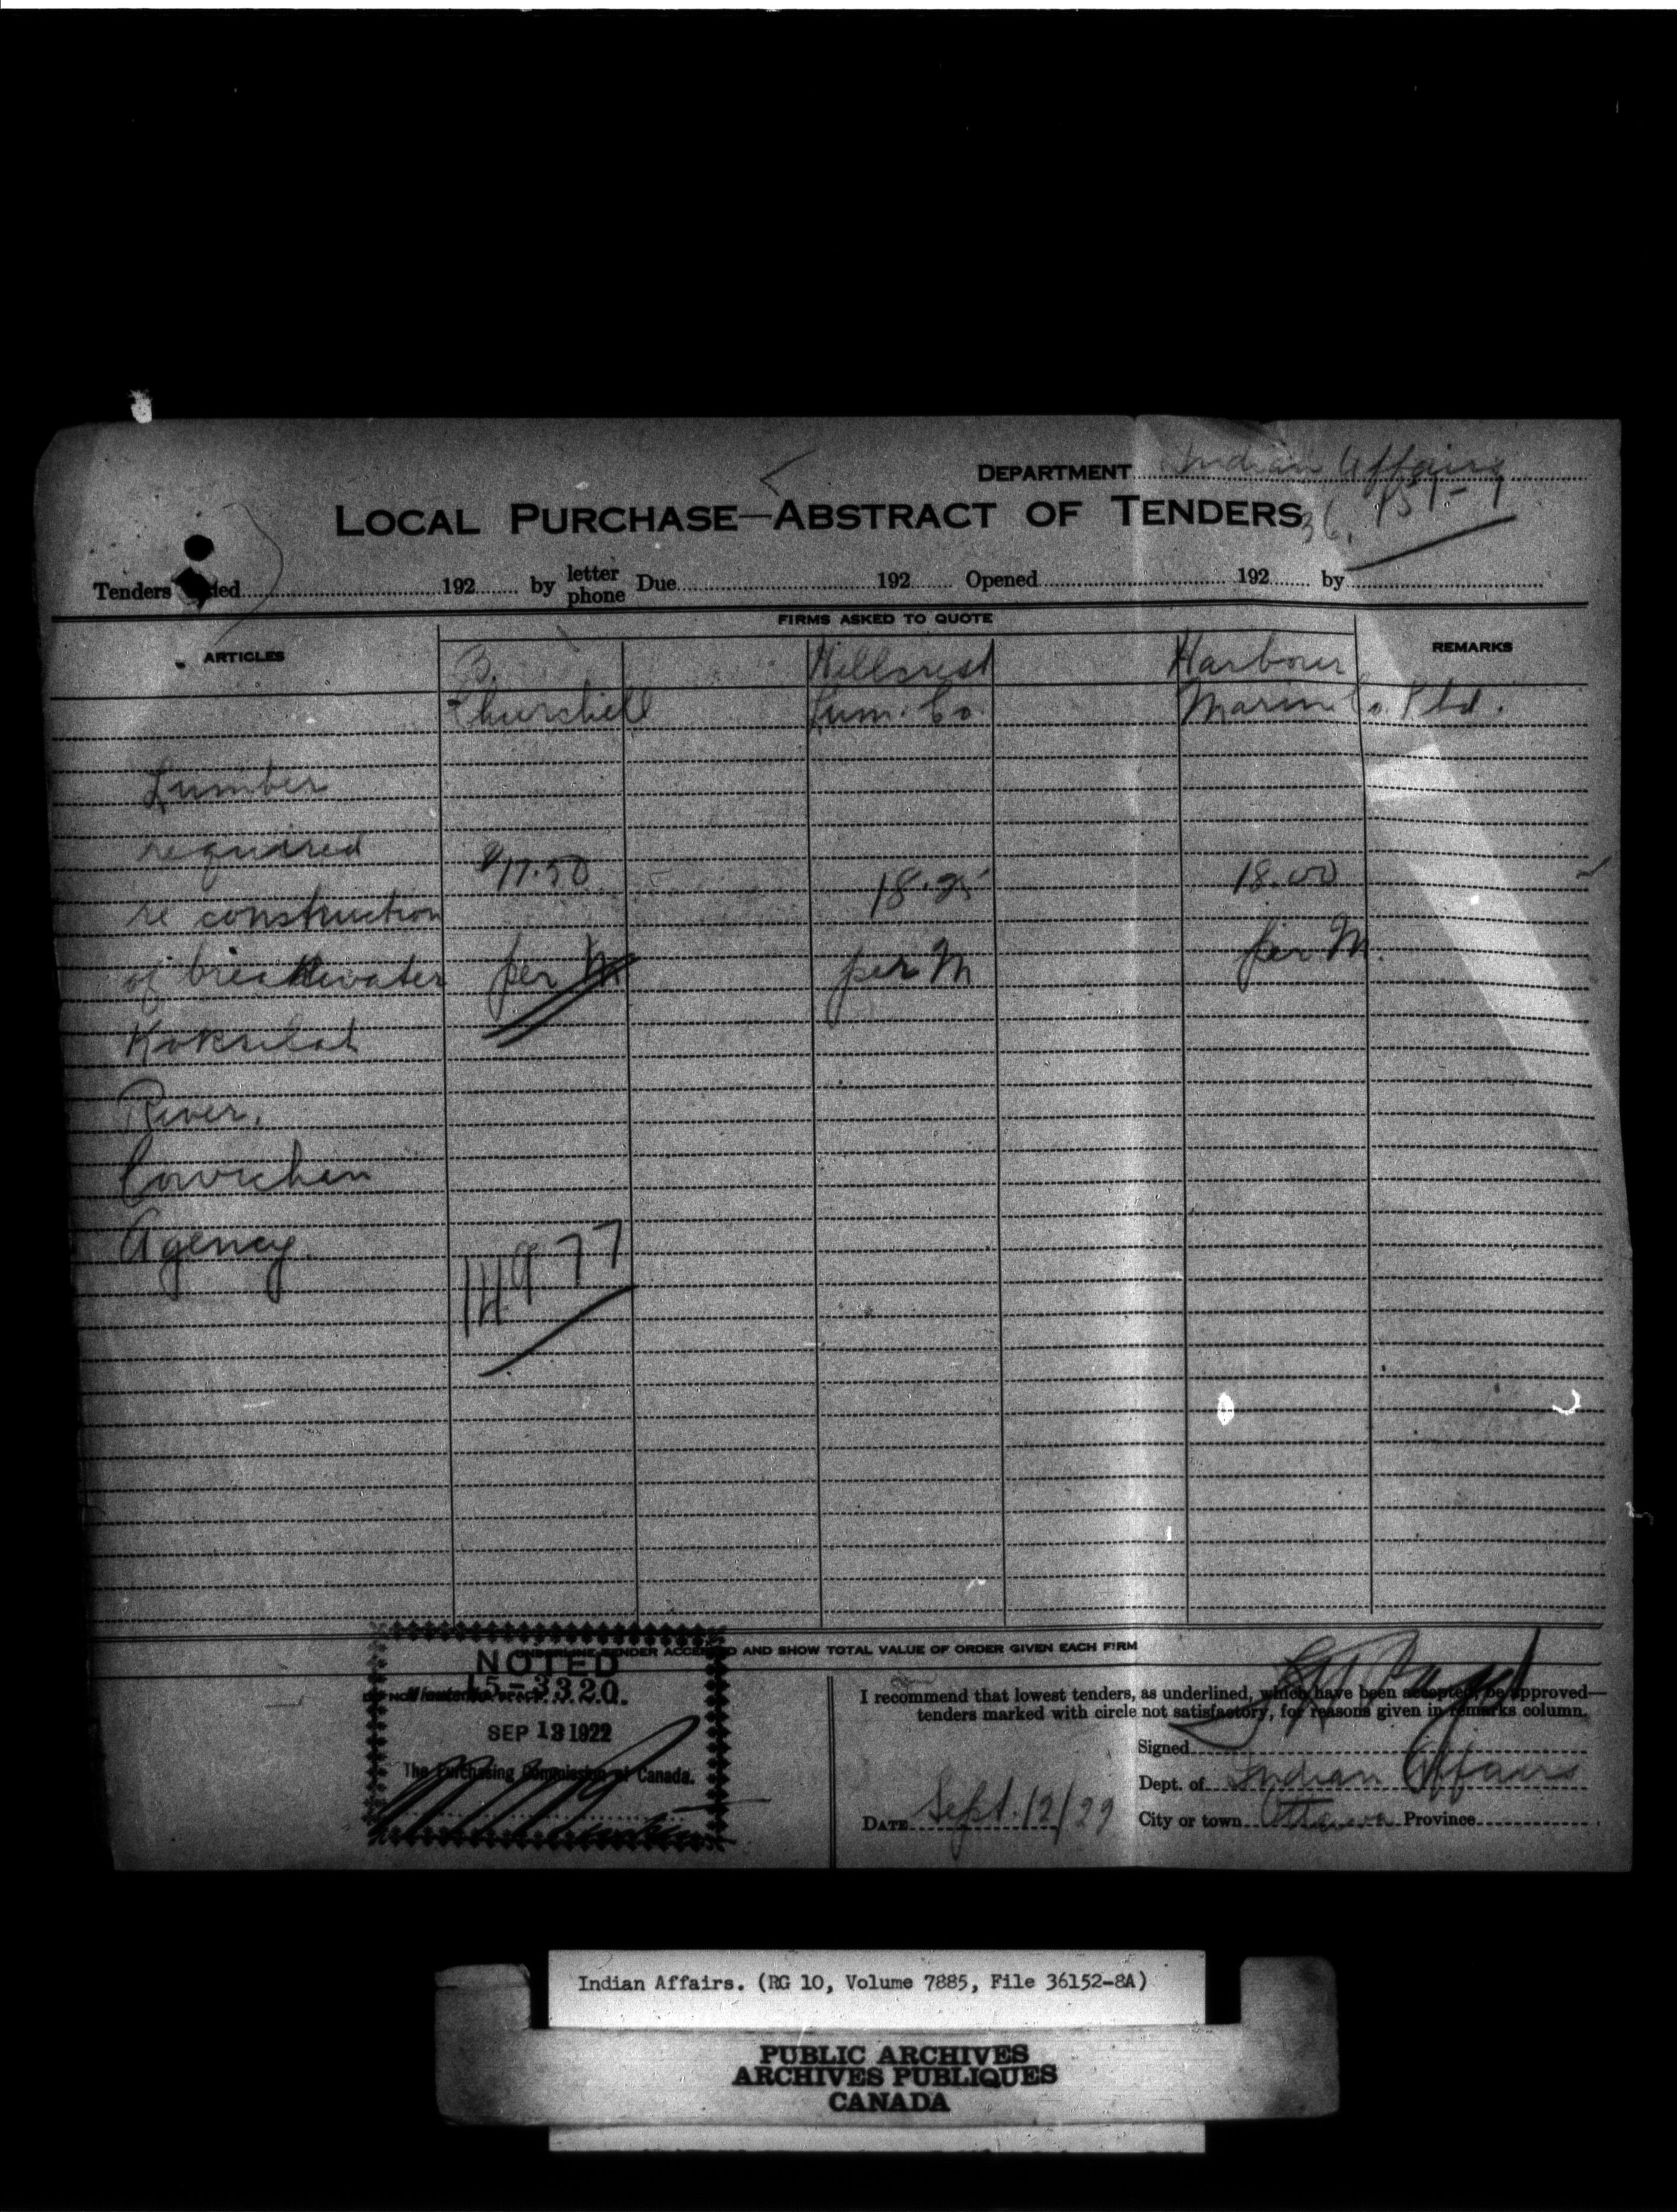 DEPARTMENT Indian Affairs
LOCAL PURCHASE—ABSTRACT OF TENDERS
36,
Tenders ded 192 by letter phone Due 192 Opened 192 by
FIRMS ASKED TO QUOTE
ARTICLES
REMARKS
B. Hillcrest Harbour
Churchill Lum. Co. Marine Co. Ltd.
Lumber
required
$17.50 18.25 18.00
re construction
of breakwater per M per M per M.
Koksilah
River,
Cowichan
Agency.
149 77
TENDER ACCE D AND SHOW TOTAL VALUE OF ORDER GIVEN EACH FIRM
NOTED
15-3320
SEP 13 1922
The Purchasing Commission of Canada.
I recommend that lowest tenders, as underlined, which have been accepted, be approved—
tenders marked with circle not satisfactory, for reasons given in remarks column.
Signed
Dept. of Indian Affairs
DATE Sept. 12/22 City or town Ottawa Province
Indian Affairs. (RG 10, Volume 7885, File 36152-8A)
PUBLIC ARCHIVES
ARCHIVES PUBLIQUES
CANADA